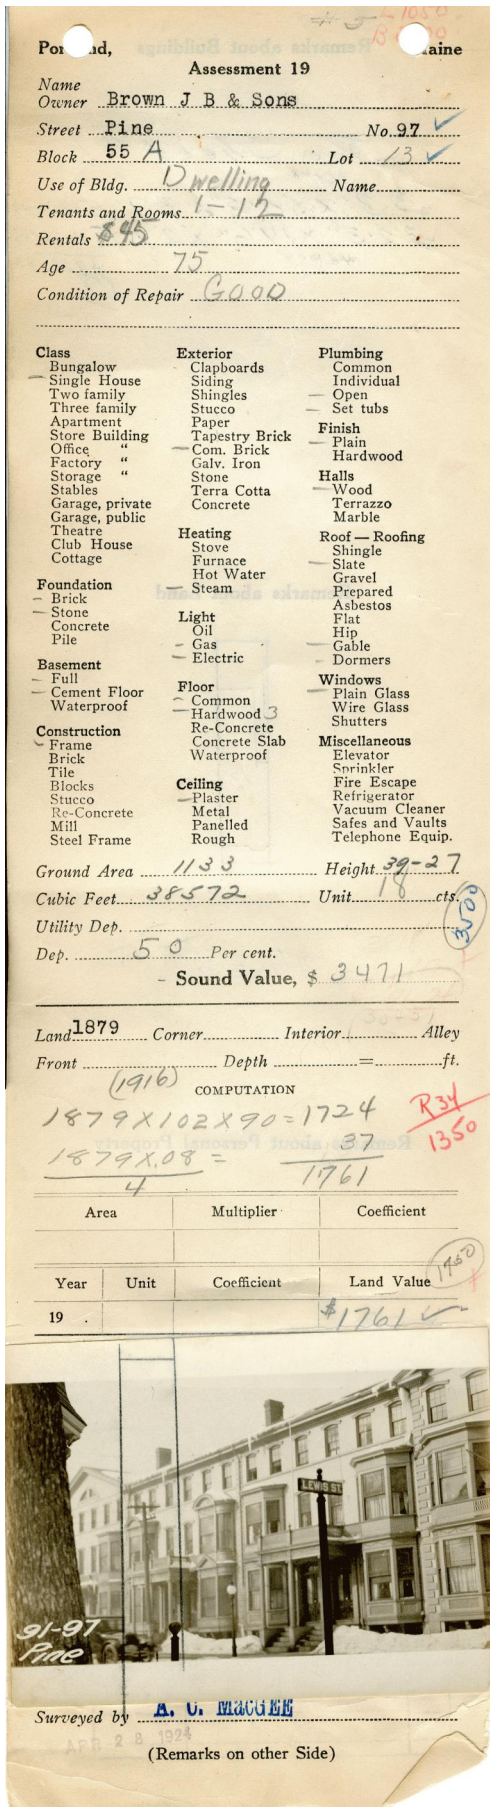 L 1050
Portland, Maine
Assessment 19
Name
Owner Brown J B & Sons
Street Pine No. 97 ✓
Block 55 A Lot 13 ✓
Use of Bldg. Dwelling Name
Tenants and Rooms 1-12
Rentals $45
Age 75
Condition of Repair GOOD
Class
Bungalow
— Single House
Two family
Three family
Apartment
Store Building
Office "
Factory "
Storage "
Stables
Garage, private
Garage, public
Theatre
Club House
Cottage
Foundation
— Brick
— Stone
Concrete
Pile
Basement
— Full
— Cement Floor
Waterproof
Construction
— Frame
Brick
Tile
Blocks
Stucco
Re-Concrete
Mill
Steel Frame
Exterior
Clapboards
Siding
Shingles
Stucco
Paper
Tapestry Brick
— Com. Brick
Galv. Iron
Stone
Terra Cotta
Concrete
Heating
Stove
Furnace
Hot Water
— Steam
Light
Oil
— Gas
— Electric
Floor
— Common
— Hardwood 3
Re-Concrete
Concrete Slab
Waterproof
Ceiling
— Plaster
Metal
Panelled
Rough
Plumbing
Common
Individual
— Open
— Set tubs
Finish
— Plain
Hardwood
Halls
— Wood
Terrazzo
Marble
Roof — Roofing
Shingle
— Slate
Gravel
Prepared
Asbestos
Flat
Hip
— Gable
— Dormers
Windows
— Plain Glass
Wire Glass
Shutters
Miscellaneous
Elevator
Sprinkler
Fire Escape
Refrigerator
Vacuum Cleaner
Safes and Vaults
Telephone Equip.
Ground Area 1133 Height 39-27
Cubic Feet 38572 Unit 18 cts.
3500
Utility Dep.
Dep. 50 Per cent.
- Sound Value, $ 3471
Land 1879 Corner Interior Alley
Front Depth = ft.
(1916)
COMPUTATION
1879 X 102 X 90 = 1724
R34
1350
1879 X .08 = 37
4 1761
Area Multiplier Coefficient
1750
Year Unit Coefficient Land Value
19 . $1761 ✓
LEWIS ST.
91-97
Pine
Surveyed by A. C. MacGEE
APR 28 1924
(Remarks on other Side)